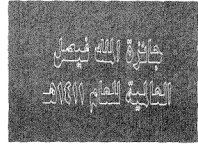 جائزة الملك فيصل
العالمية للعام ١٤١١هـ